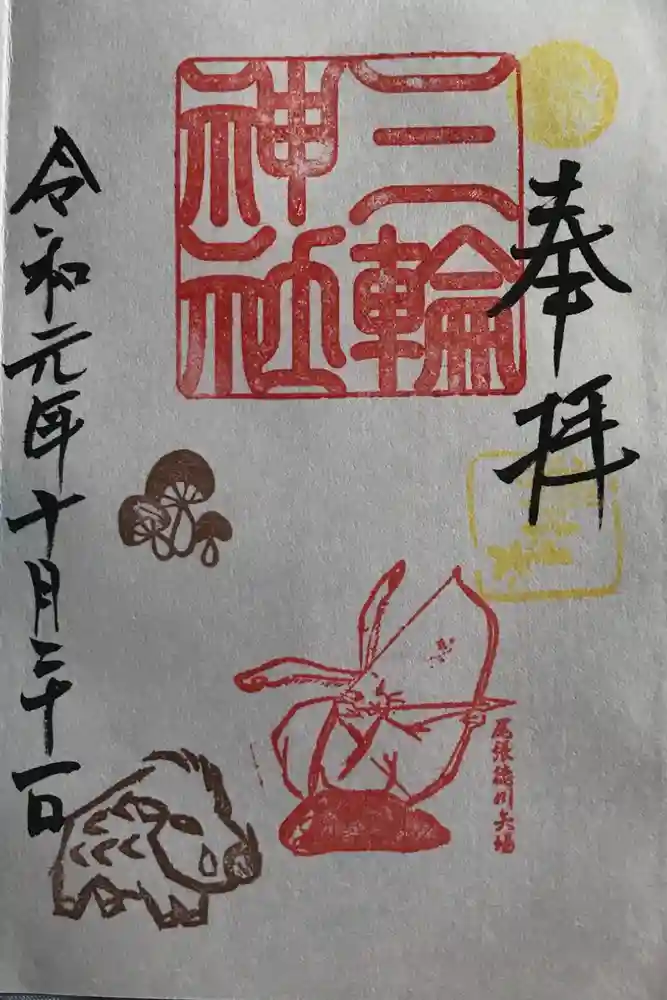 奉拝
三輪
神社
尾張徳川矢場
令和元年十月二十一日